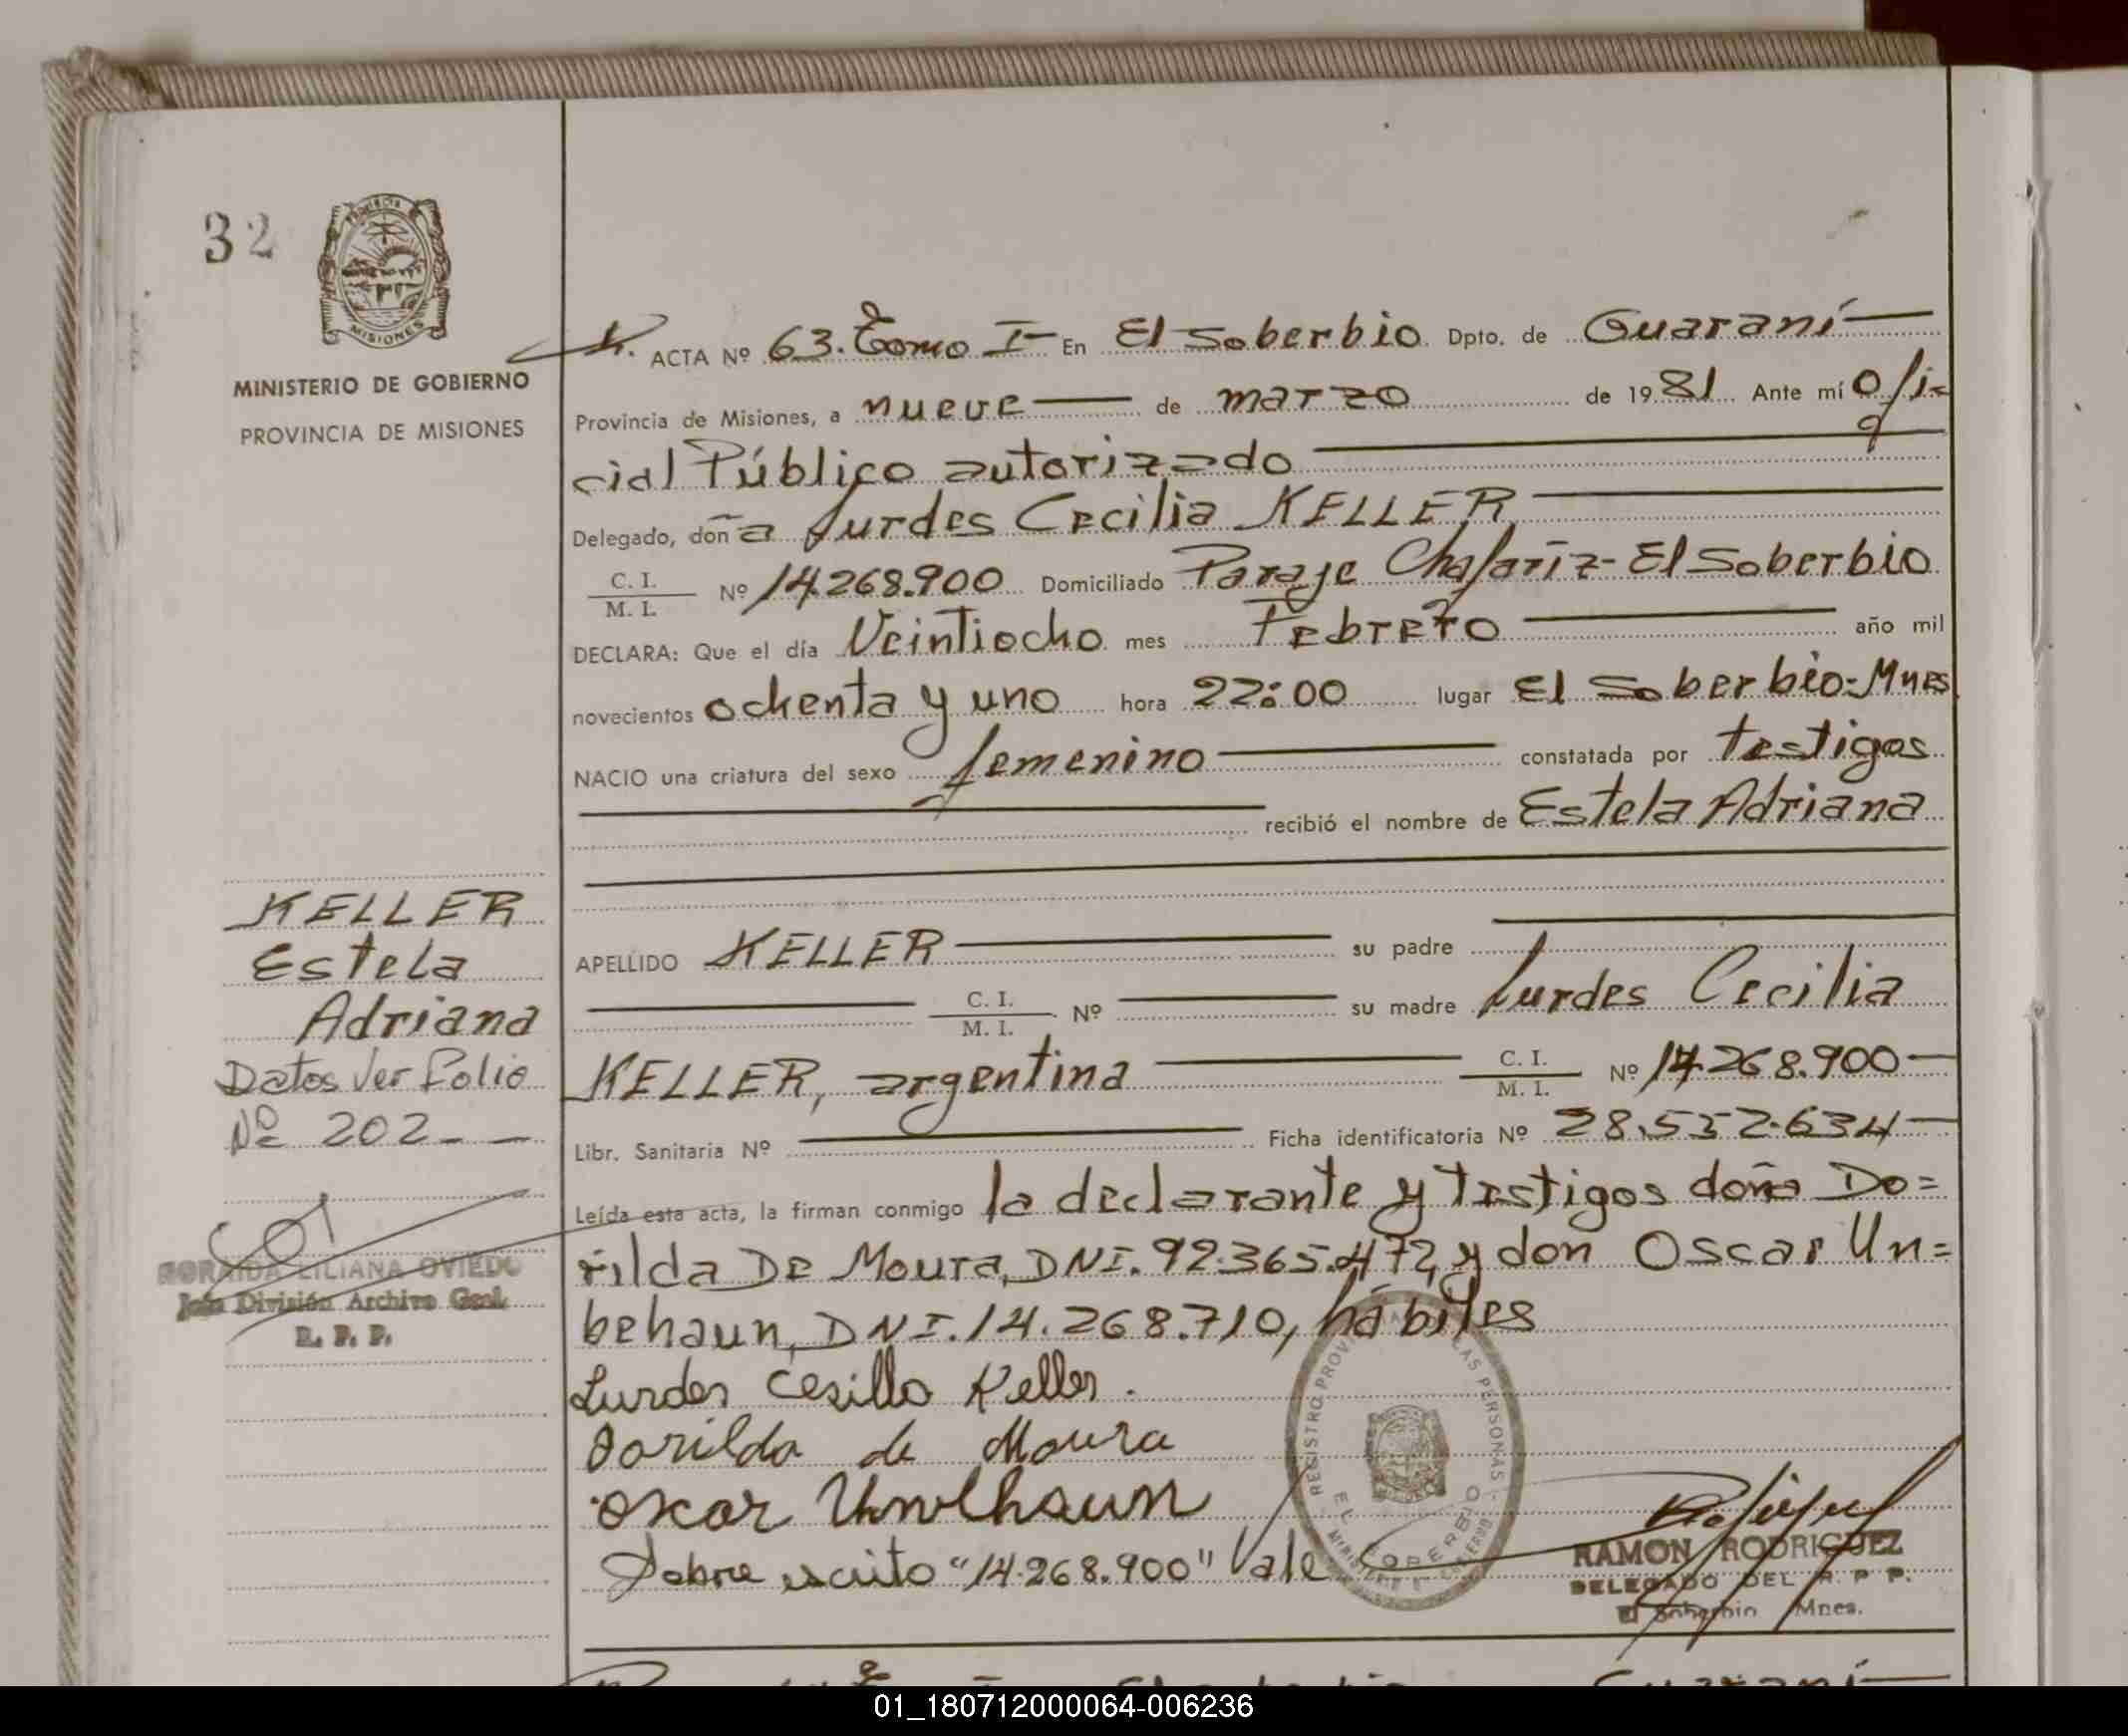 32
MINISTERIO DE GOBIERNO
PROVINCIA DE MISIONES
ACTA Nº 63. Tomo I En El Soberbio Dpto. de Guaraní
Provincia de Misiones, a nueve de marzo de 1981 Ante mí Ofi=
cial Público autorizado
Delegado, doña Lurdes Cecilia KELLER
C. I. / M. I. Nº 14.268.900 Domiciliado Paraje Chafaríz - El Soberbio
DECLARA: Que el día Veintiocho mes Febrero año mil
novecientos ochenta y uno hora 22:00 lugar El Soberbio-Mnes
NACIO una criatura del sexo femenino constatada por testigos
recibió el nombre de Estela Adriana
APELLIDO KELLER su padre
C. I. / M. I. Nº su madre Lurdes Cecilia
KELLER, argentina C. I. / M. I. Nº 14.268.900
Libr. Sanitaria Nº Ficha identificatoria Nº 28.532.634
Leída esta acta, la firman conmigo la declarante y testigos doña Do=
rilda De Moura, DNI. 92.365.472 y don Oscar Un=
behaun, DNI. 14.268.710, hábiles
Lurdes Cesilla Keller.
Dorilda de Moura
Oscar Unbehaun
Sobre escrito "14.268.900" Vale
KELLER
Estela
Adriana
Datos Ver Folio
Nº 202
ZORAIDA LILIANA OVIEDO
Jefa División Archivo Gral.
R. P. P.
REGISTRO PROV LAS PERSONAS
EL SOBERBIO
RAMON RODRIGUEZ
DELEGADO DEL R. P. P.
El Soberbio Mnes.
01_180712000064-006236